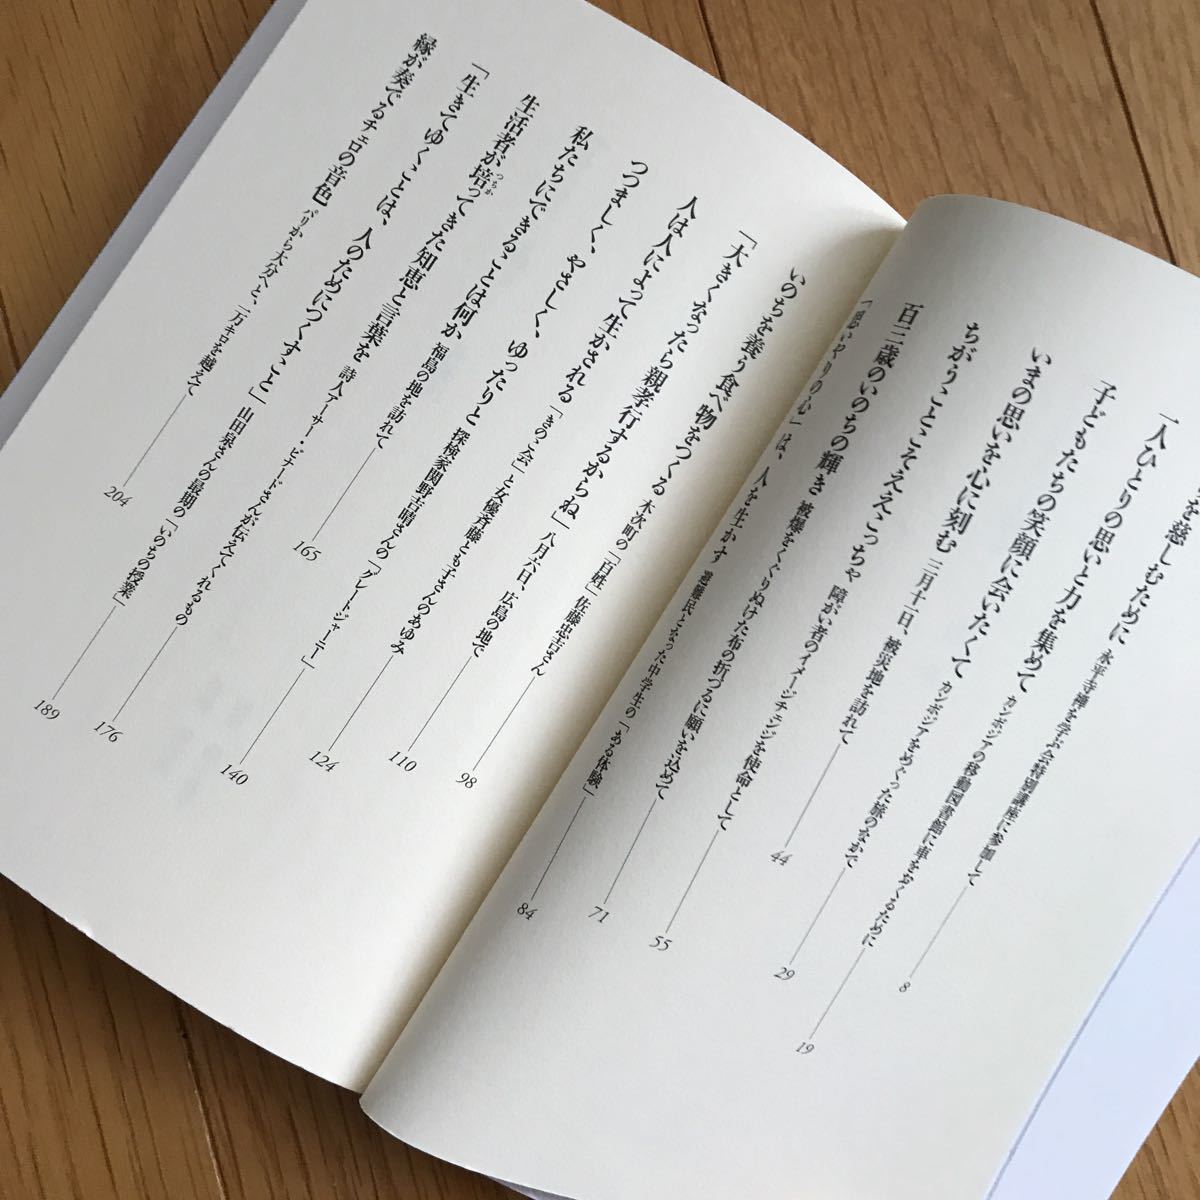 を慈しむために 永平寺禅を学ぶ会特別講座に参加して 8
一人ひとりの思いと力を集めて カンボジアの移動図書館に車をおくるために 19
子どもたちの笑顔に会いたくて カンボジアをめぐった旅のなかで 29
いまの思いを心に刻む 三月十一日、被災地を訪れて 44
ちがうことこそええこっちゃ 障がい者のイメージチェンジを使命として 55
百三歳のいのちの輝き 被爆をくぐりぬけた布の折づるに願いを込めて 71
「思いやりの心」は、人を生かす 避難民となった中学生の「ある体験」 84
いのちを養う食べ物をつくる 木次町の「百姓」佐藤忠吉さん 98
「大きくなったら親孝行するからね」 八月六日、広島の地で 110
人は人によって生かされる 「きのこ会」と女優斉藤とも子さんのあゆみ 124
つつましく、やさしく、ゆったりと 探検家関野吉晴さんの「グレートジャーニー」 140
私たちにできることは何か 福島の地を訪れて 165
生活者が培つちかってきた知恵と言葉を 詩人アーサー・ビナードさんが伝えてくれるもの 176
「生きてゆくことは、人のためにつくすこと」 山田泉さんの最期の「いのちの授業」 189
縁が奏でるチェロの音色 パリから大分へと、二万キロを越えて 204